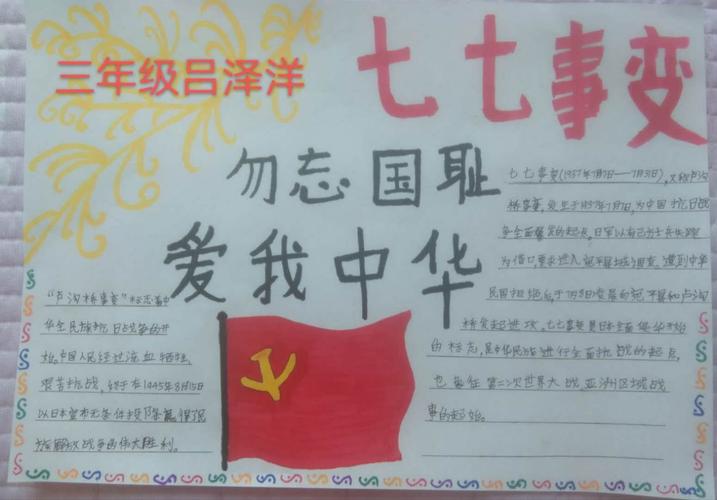 三年级吕泽洋
七七事变
勿忘国耻
爱我中华
七七事变(1937年7月7日——7月31日),又称卢沟
桥事变,发生于1937年7月7日,为中国抗日战
争全面爆发的起点,日军以有己方士兵失踪
为借口,要求进入宛平县城调查,遭到中华
民国拒绝后于7月8日凌晨向宛平县和卢沟
桥发起进攻,七七事变是日本全面侵华开始
的标志,是中华民族进行全面抗战的起点,
也象征第二次世界大战亚洲区域战
事的起始。
"卢沟桥事变"标志着中
华全民族抗日战争的开
始,中国人民经过流血牺牲,
艰苦抗战,终于在1945年8月15日
以日本宣布无条件投降赢得民
族解放战争的伟大胜利。